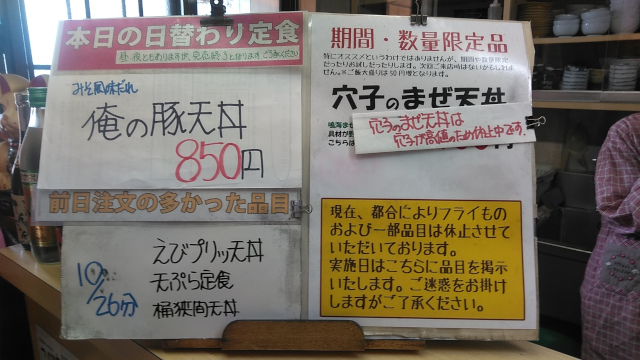 本日の日替わり定食
昼・夜ともありますが、完売終了となります ご了承ください
みそ風味だれ
俺の豚天丼
850円
前日注文の多かった品目
10/26分
えびプリッ天丼
天ぷら定食
桶狭間天丼
期間・数量限定品
特にオススメというわけではありませんが、期間や数量限定
だったりお試しだったりします。次回ご来店時はないかもしれま
せん。※ご飯大盛りは50円増となります。
穴子のまぜ天丼
鳴海まぜ
具材が
こちらは
穴子のまぜ天丼は
穴子が高値のため休止中です。
現在、都合によりフライもの
および一部品目は休止させて
いただいております。
実施日はこちらに品目を掲示
いたします。ご迷惑をお掛け
しますがご了承ください。